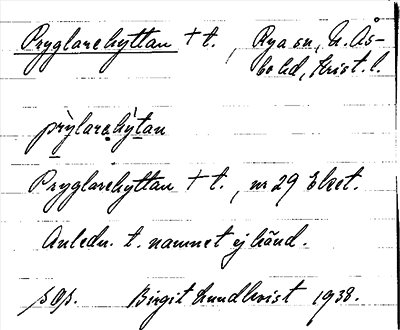 Pryglarehyttan + t., Rya sn, N. Ås-
bo hd, Krist. l.
prỳlarehy̍tan
Pryglarehyttan + t., nr 29 Ebbet.
Anledn. t. namnet ej känd.
s Os. Birgit Lundkvist 1938.